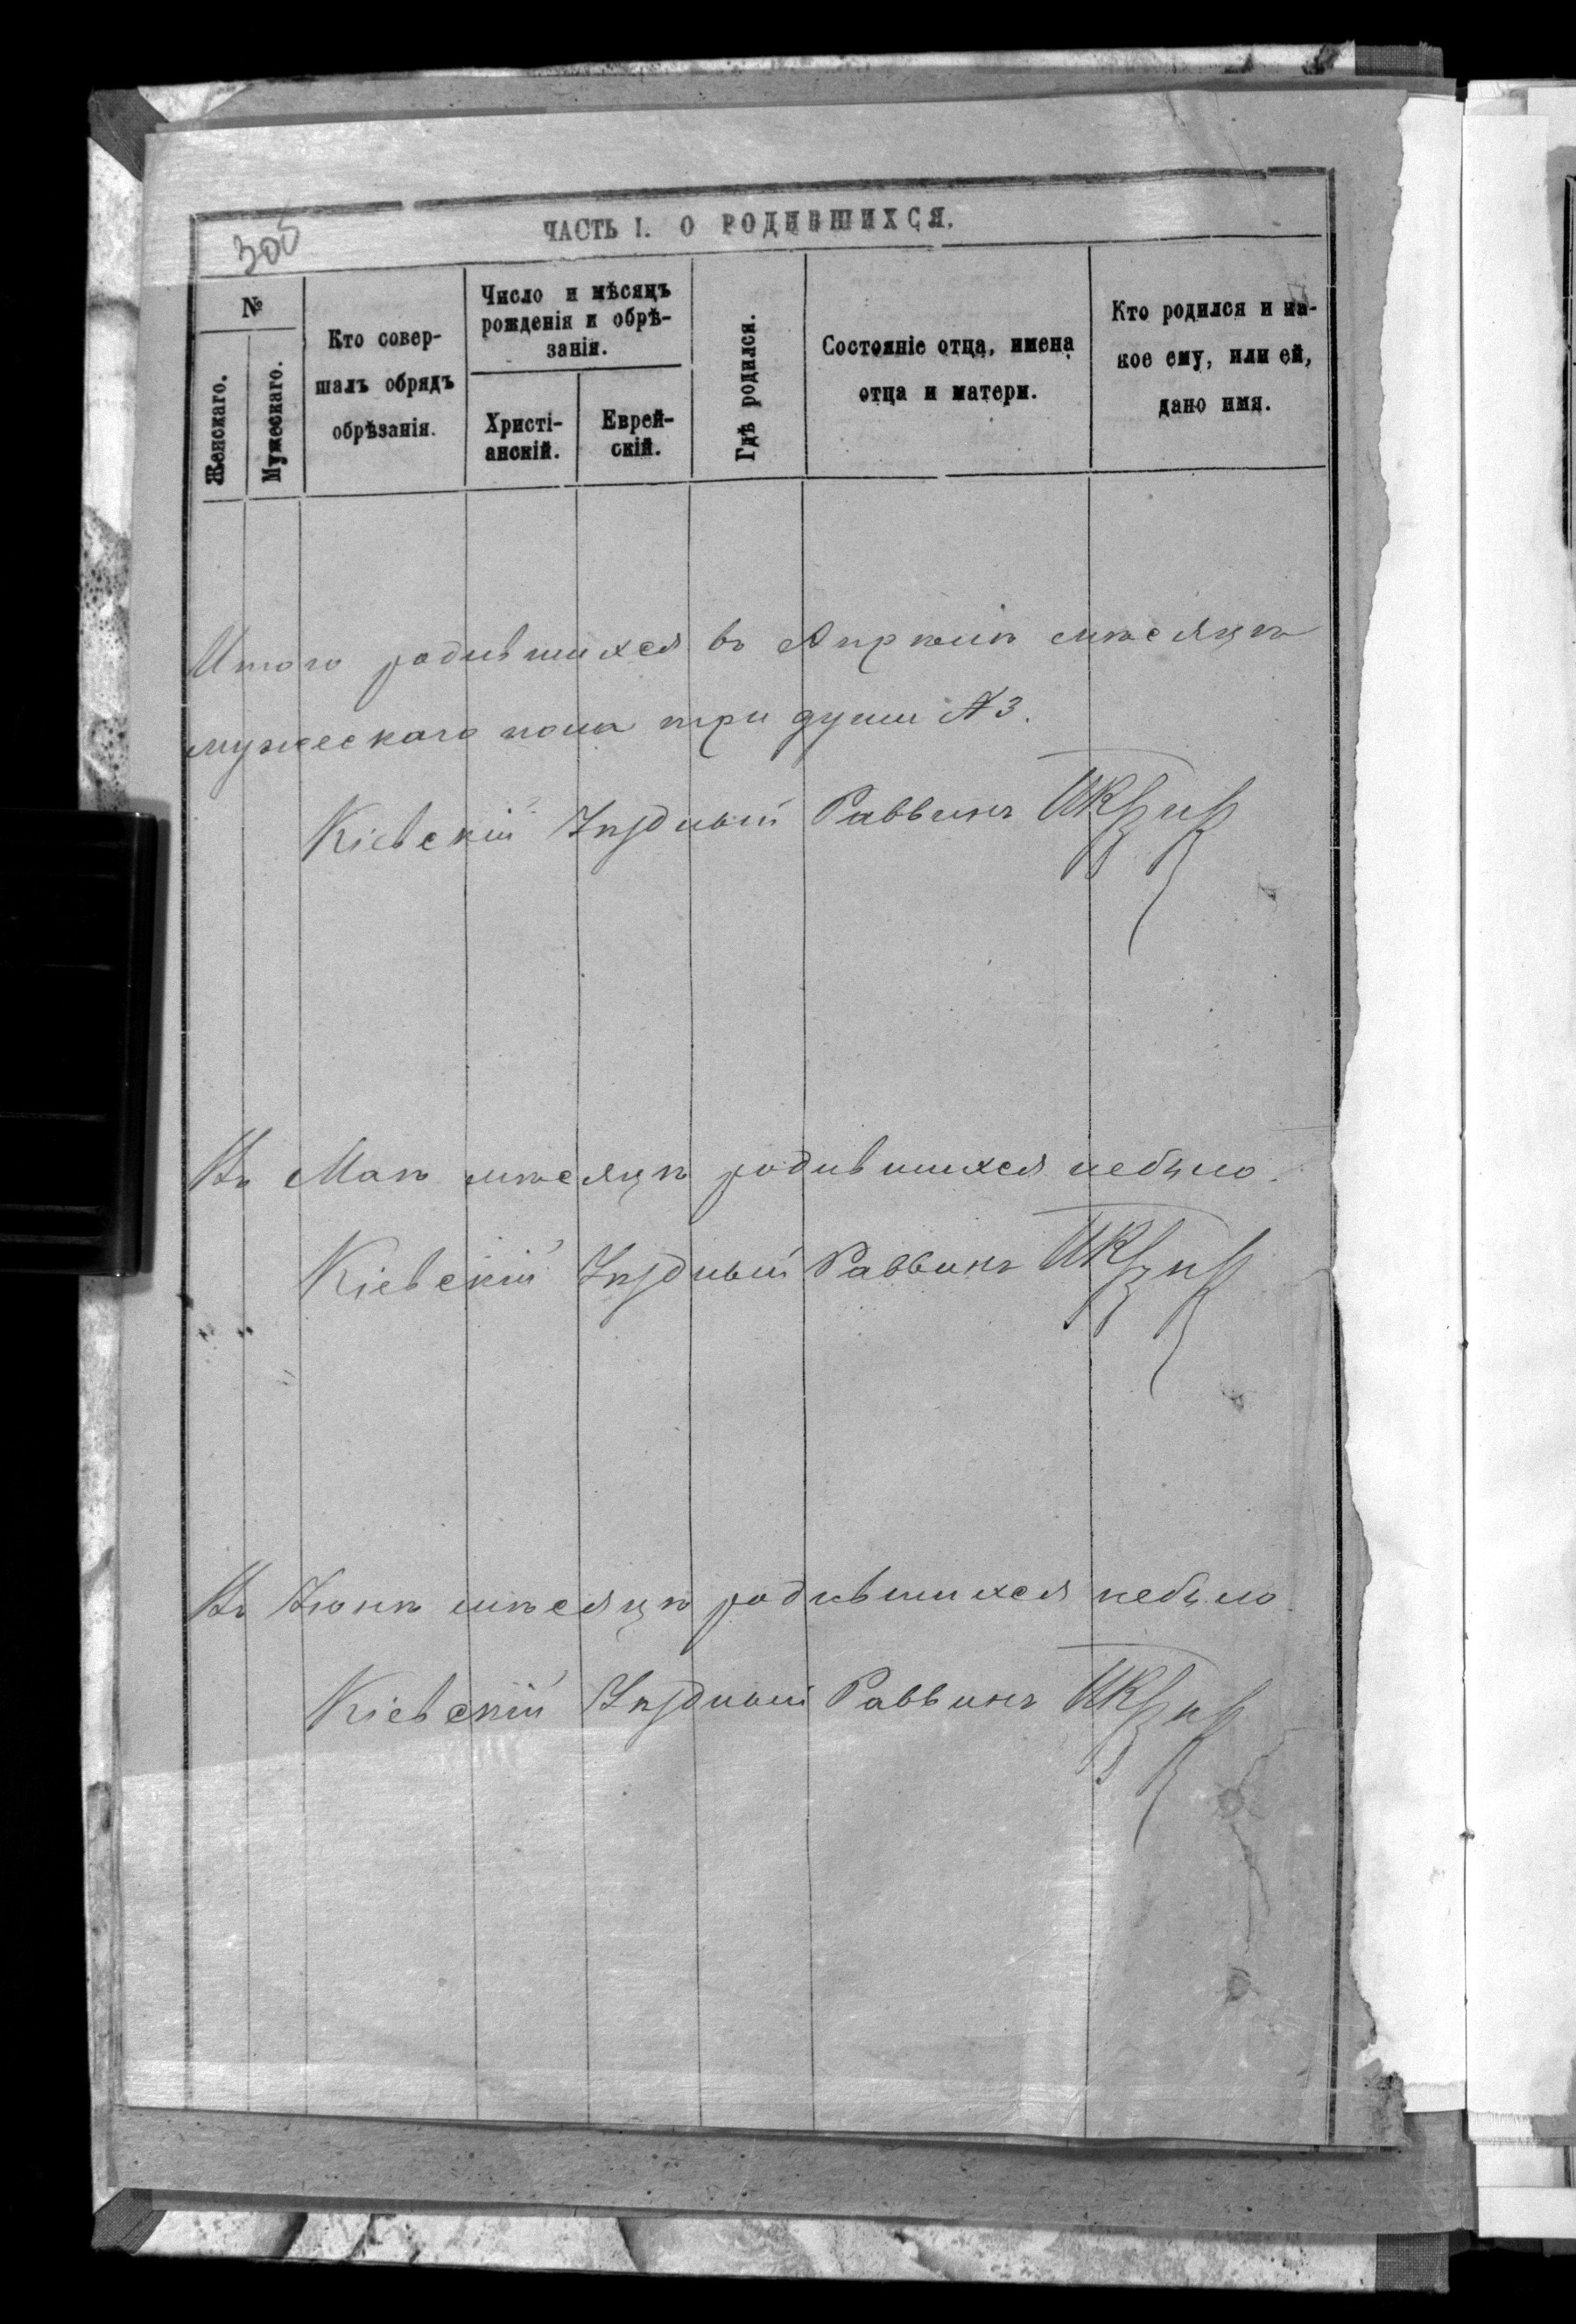 305
ЧАСТЬ I. О РОДИВШИХСЯ.
№
Женскаго.
Мужескаго.
Кто совер-
шалъ обрядъ
обрѣзанія.
Число и мѣсяцъ
рожденія и обрѣ-
занія.
Христі-
анскій.
Еврей-
скій.
Гдѣ родился.
Состояніе отца, имена
отца и матери.
Кто родился и ка-
кое ему, или ей,
дано имя.
Итого родившихся въ Апрѣлѣ мѣсяцѣ
мужескаго пола три души №3.
Кіевскій Уѣздный Раввинъ
Въ Маѣ мѣсяцѣ родившихся небыло.
Кіевскій Уѣздный Раввинъ
Въ Іюнѣ мѣсяцѣ родившихся небыло
Кіевскій Уѣздный Раввинъ